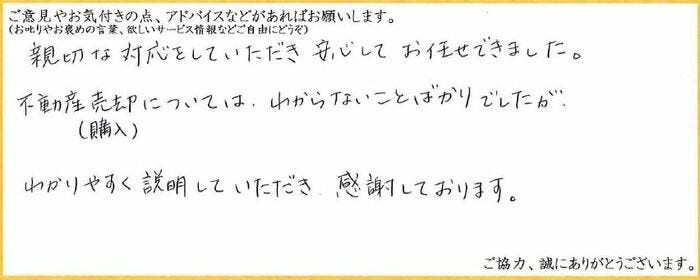 ご意見やお気付きの点、アドバイスなどがあればお願いします。
(お叱りやお褒めの言葉、欲しいサービス情報などご自由にどうぞ)
親切な対応をしていただき 安心して お任せできました。
不動産売却については、わからないことばかりでしたが、
(購入)
わかりやすく説明していただき、感謝しております。
ご協力、誠にありがとうございます。